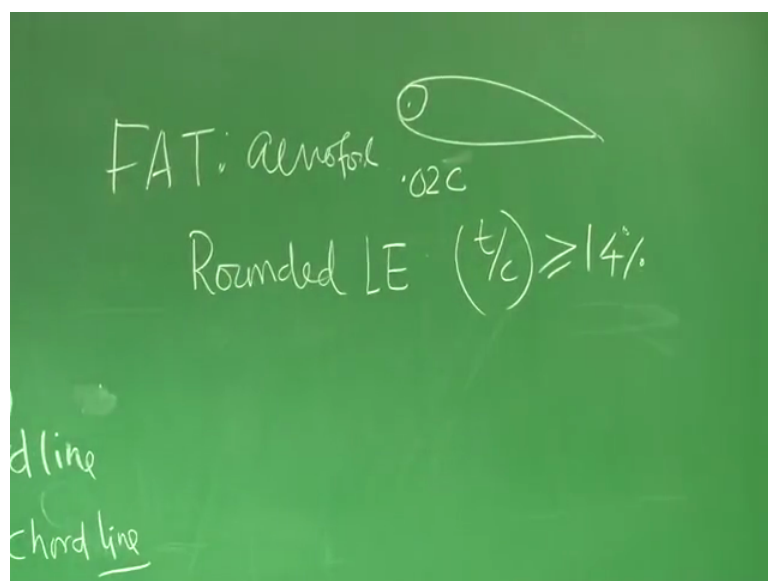 FAT: aerofoil
.02C
Rounded LE (t/c) ≥ 14%
d line
chord line